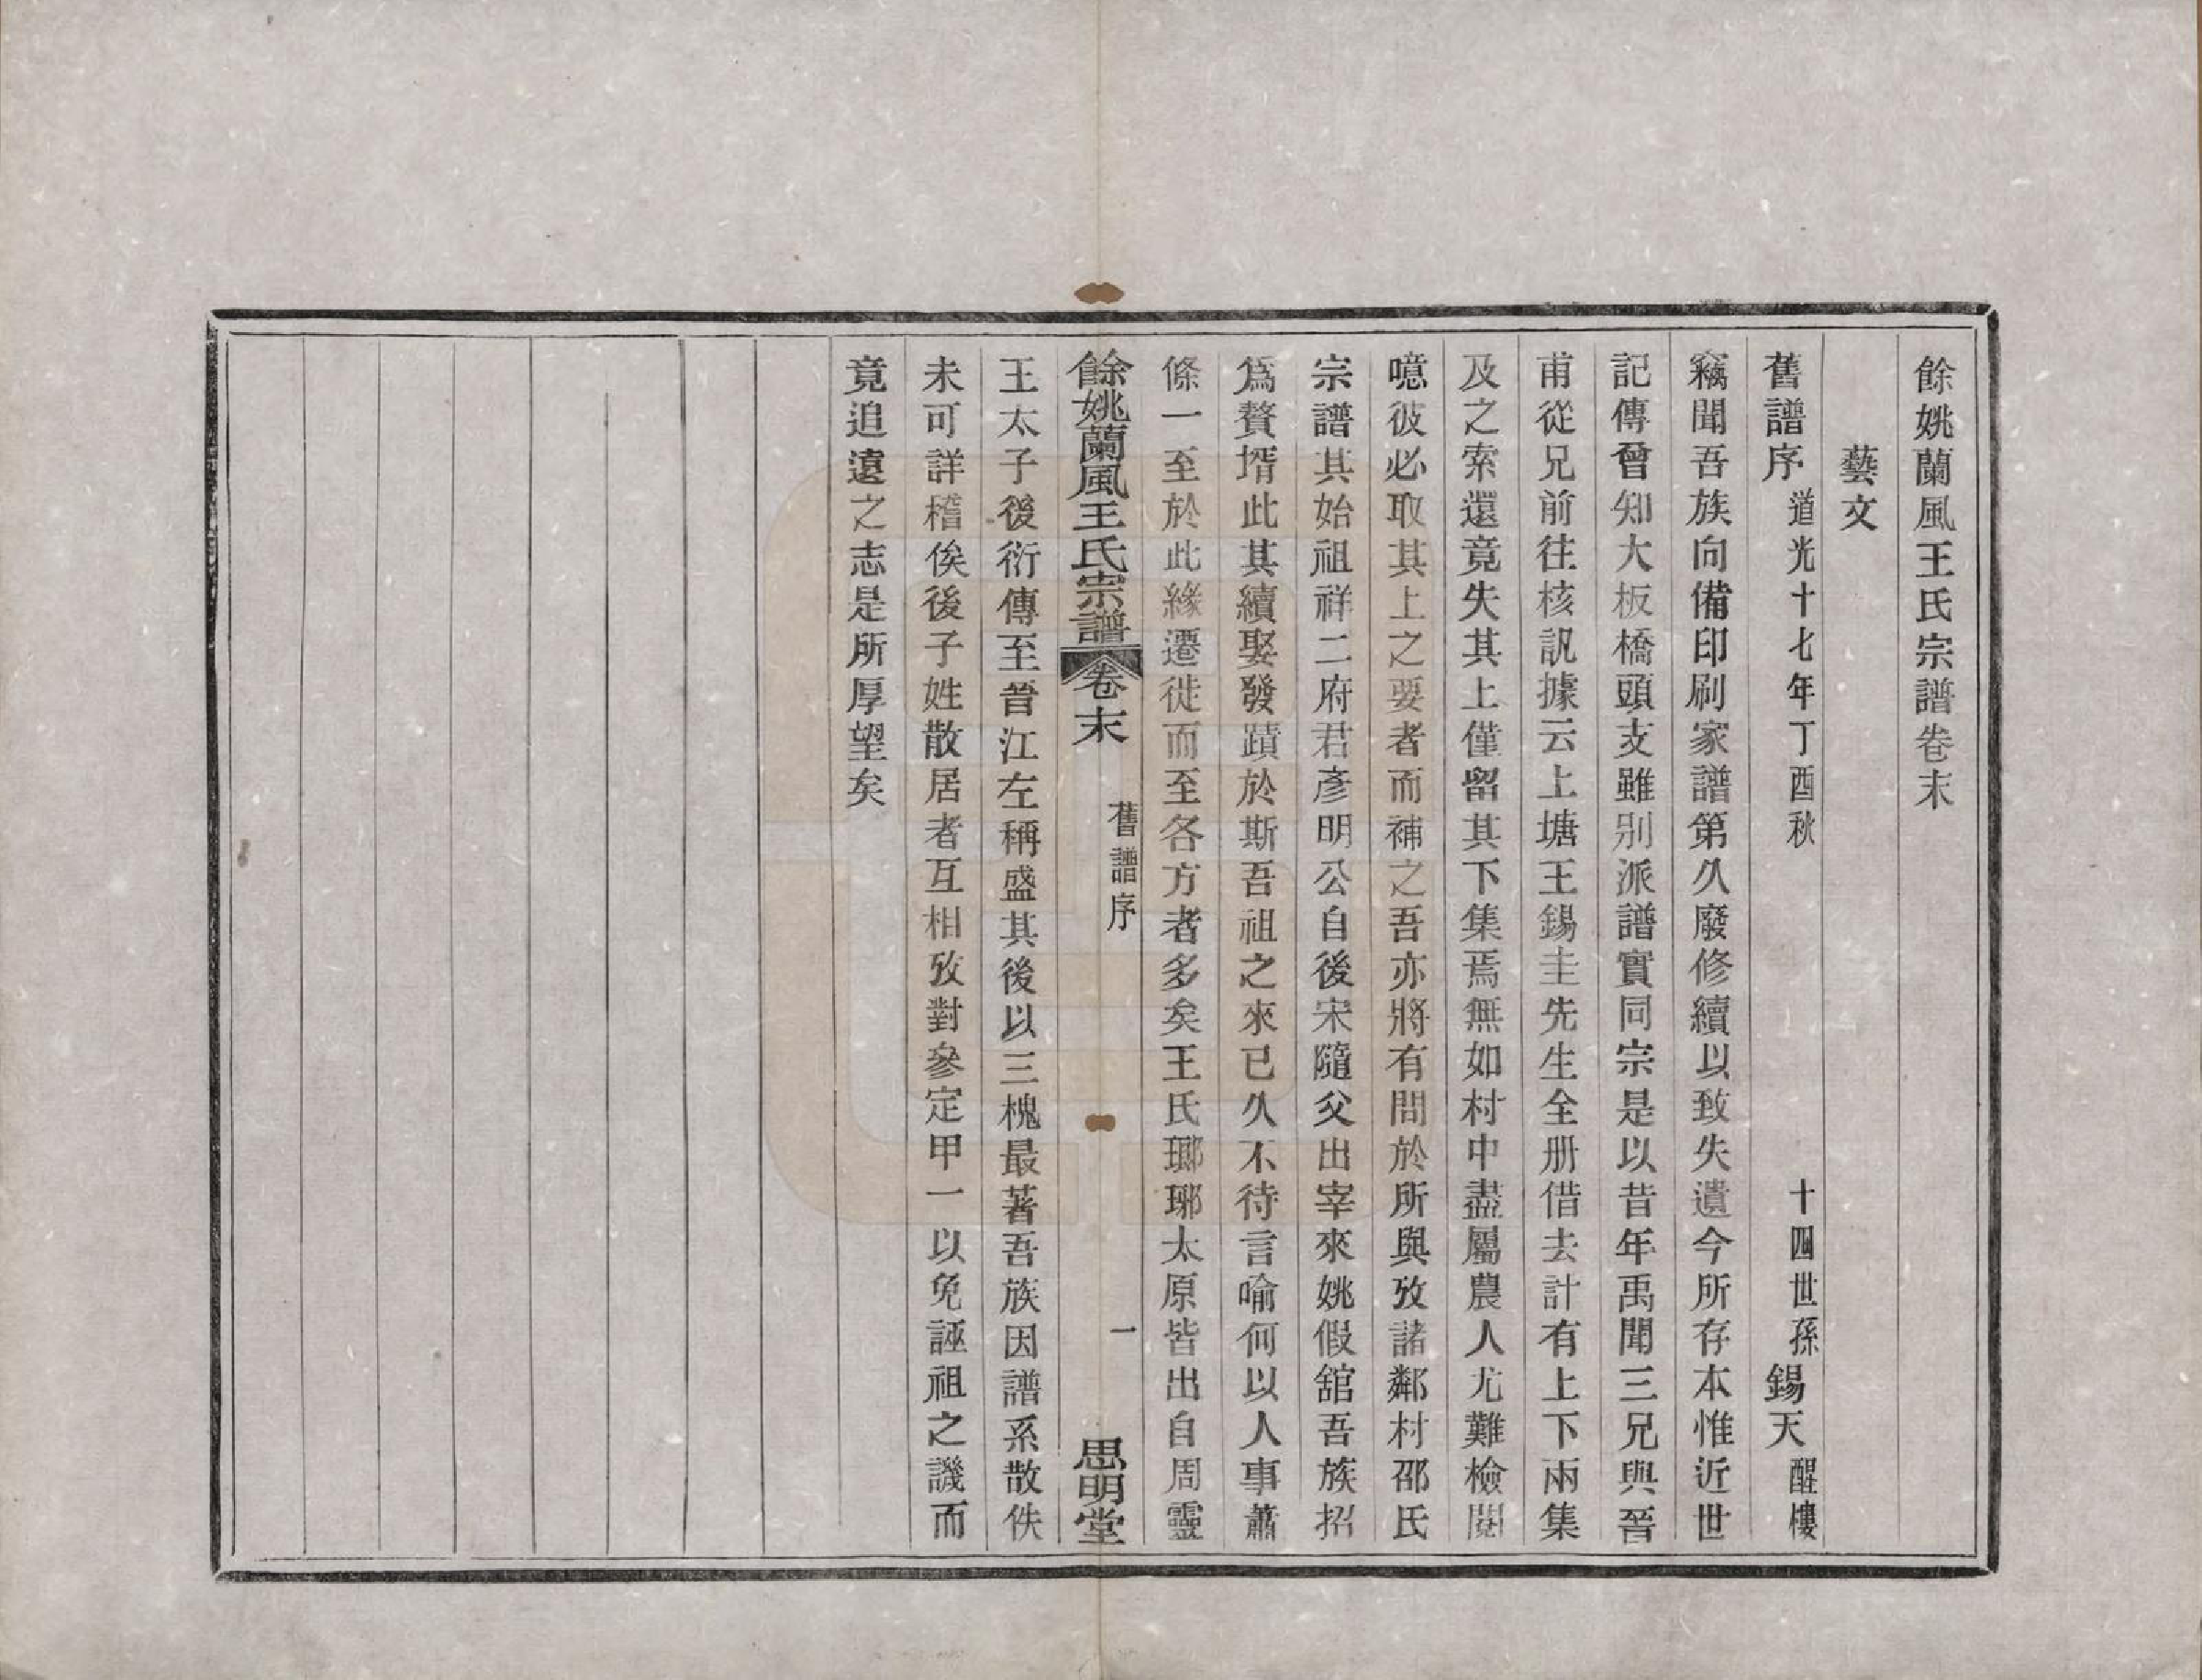 餘姚蘭風王氏宗譜卷末
藝文
舊譜序 道光十七年丁酉秋 十四世孫錫天醒樓
竊聞吾族向備印刷家譜第久廢修續以致失遺今所存本惟近世
記傳曾知大板橋頭支雖別派譜實同宗是以昔年禹聞三兄與晉
甫從兄前往核訊據云上塘王錫圭先生全册借去計有上下兩集
及之索還竟失其上僅留其下集焉無如村中盡屬農人尤難檢閱
噫彼必取其上之要者而補之吾亦將有問於所與攷諸鄰村邵氏
宗譜其始祖祥二府君彥明公自後宋隨父出宰來姚假舘吾族招
爲贅壻此其續娶發蹟於斯吾祖之來已久不待言喻何以人事蕭
條一至於此緣遷徙而至各方者多矣王氏瑯琊太原皆出自周靈
餘姚蘭風王氏宗譜 卷末 舊譜序 一 思明堂
王太子後衍傳至晉江左稱盛其後以三槐最著吾族因譜系散佚
未可詳稽俟後子姓散居者互相攷對參定甲一以免誣祖之譏而
竟追遠之志是所厚望矣